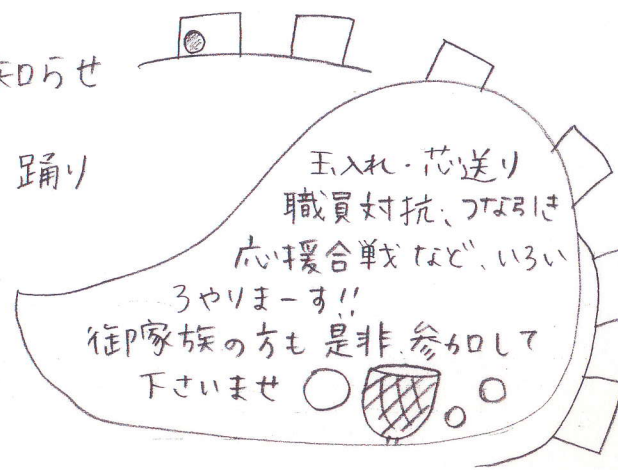 知らせ
踊り
玉入れ・芯送り
職員対抗、つな引き
応援合戦など、いろい
ろやりまーす!!
御家族の方も是非参加して
下さいませ